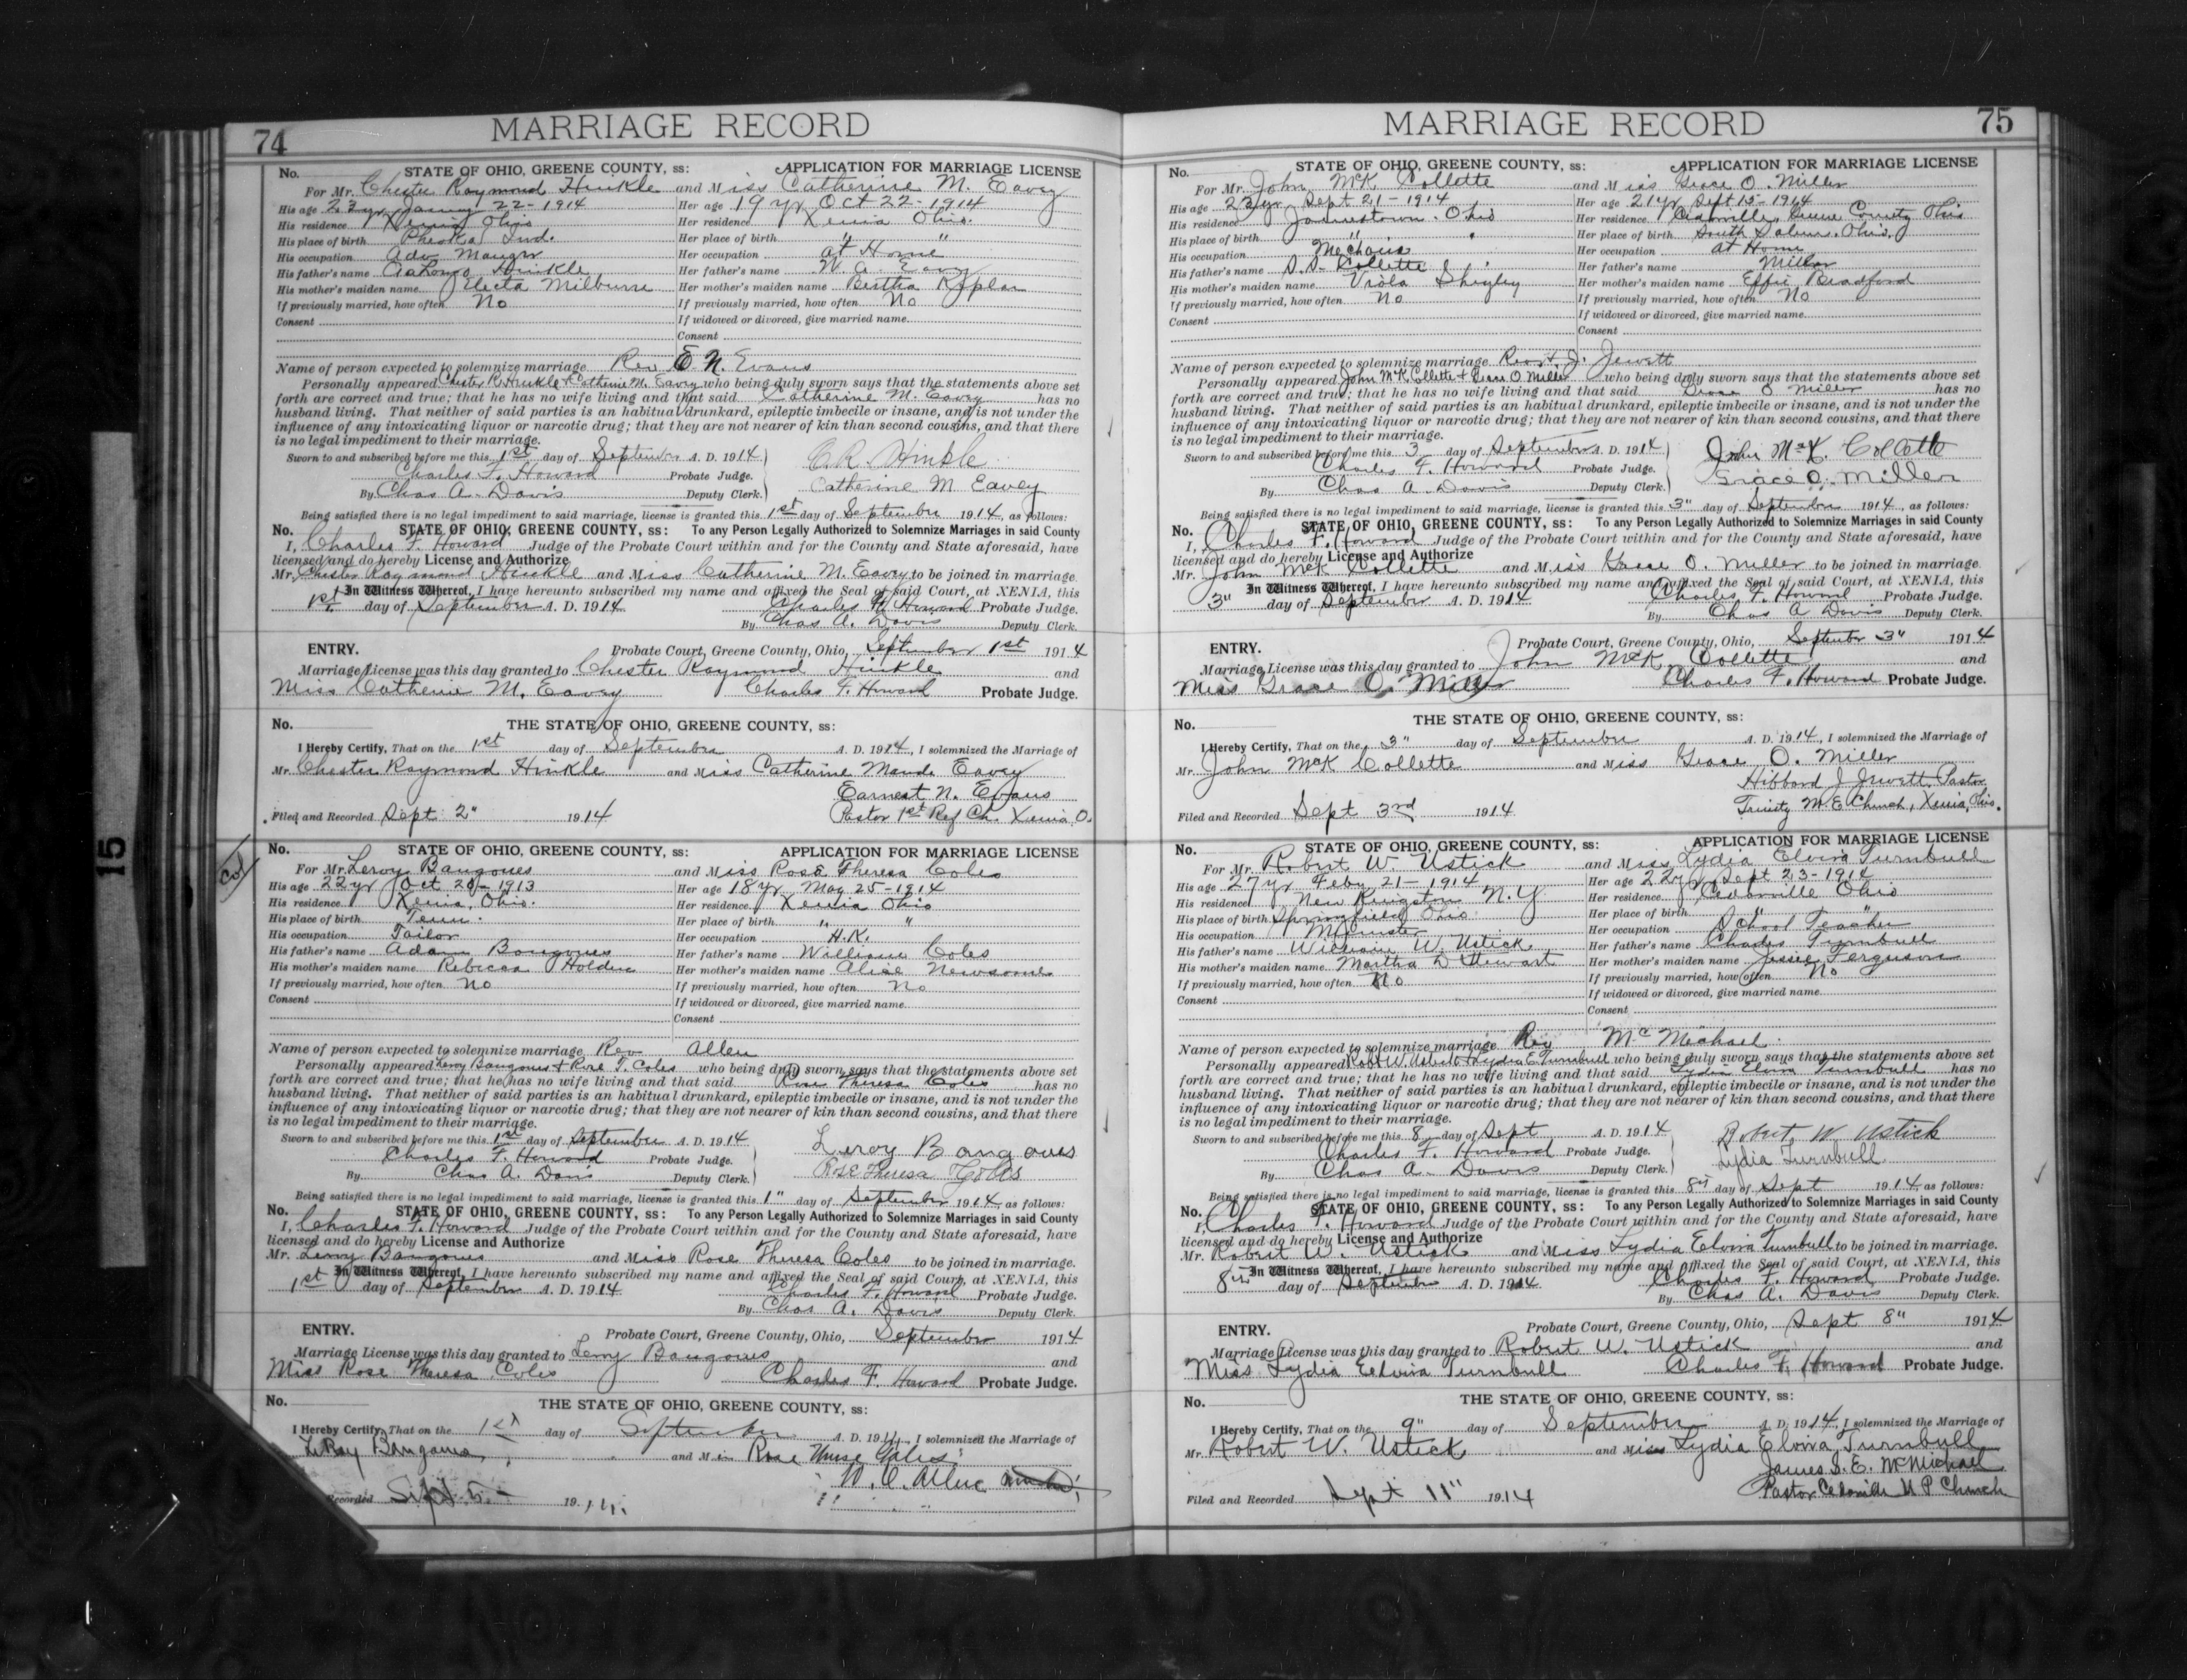 74
MARRIAGE RECORD
No. STATE OF OHIO, GREENE COUNTY, ss: APPLICATION FOR MARRIAGE LICENSE
For Mr. Chester Raymond Hinkle and Miss Catherine M. Eavey
His age 23 yr Jany 22-1914 Her age 19 yr Oct 22-1914
His residence Xenia Ohio Her residence Xenia Ohio.
His place of birth Ind. Her place of birth " "
His occupation Adv Mangr Her occupation at Home
His father's name Hinkle Her father's name W. A. Eavey
His mother's maiden name Electa Milburne Her mother's maiden name Bertha
If previously married, how often No If previously married, how often No
Consent If widowed or divorced, give married name
Consent
Name of person expected to solemnize marriage Rev E. N. Evans
Personally appeared Chester R. Hinkle & Catherine M. Eavey who being duly sworn says that the statements above set
forth are correct and true; that he has no wife living and that said Catherine M. Eavey has no
husband living. That neither of said parties is an habitual drunkard, epileptic imbecile or insane, and is not under the
influence of any intoxicating liquor or narcotic drug; that they are not nearer of kin than second cousins, and that there
is no legal impediment to their marriage.
Sworn to and subscribed before me this 1st day of September A. D. 1914 C. R. Hinkle
Charles F. Howard Probate Judge.
By Chas A. Davis Deputy Clerk. Catherine M Eavey
Being satisfied there is no legal impediment to said marriage, license is granted this 1st day of September 1914, as follows:
No. STATE OF OHIO, GREENE COUNTY, ss: To any Person Legally Authorized to Solemnize Marriages in said County
I, Charles F. Howard Judge of the Probate Court within and for the County and State aforesaid, have
licensed and do hereby License and Authorize
Mr. Chester Raymond Hinkle and Miss Catherine M. Eavey to be joined in marriage.
In Witness Whereof, I have hereunto subscribed my name and affixed the Seal of said Court, at XENIA, this
1st day of September A. D. 1914 Charles F. Howard Probate Judge.
By Chas A. Davis Deputy Clerk.
ENTRY. Probate Court, Greene County, Ohio, September 1st 1914
Marriage License was this day granted to Chester Raymond Hinkle and
Miss Catherine M. Eavey Charles F. Howard Probate Judge.
No. THE STATE OF OHIO, GREENE COUNTY, ss:
I Hereby Certify, That on the 1st day of September A. D. 1914, I solemnized the Marriage of
Mr. Chester Raymond Hinkle and Miss Catherine Maude Eavey
Earnest N. Evans
Filed and Recorded Sept 2" 1914 Pastor 1st Ref Ch. Xenia, O.
Col
No. STATE OF OHIO, GREENE COUNTY, ss: APPLICATION FOR MARRIAGE LICENSE
For Mr. Leroy Bangoues and Miss Rose Theresa Coles
His age 22 yr Oct 20-1913 Her age 18 yr May 25-1914
His residence Xenia, Ohio. Her residence Xenia Ohio
His place of birth Tenn. Her place of birth " "
His occupation Tailor Her occupation H.K.
His father's name Adam Bangoues Her father's name William Coles
His mother's maiden name Rebecca Holden Her mother's maiden name Alice Newsome
If previously married, how often No If previously married, how often No
Consent If widowed or divorced, give married name
Consent
Name of person expected to solemnize marriage Rev Allen
Personally appeared Leroy Bangoues & Rose T. Coles who being duly sworn says that the statements above set
forth are correct and true; that he has no wife living and that said Rose Theresa Coles has no
husband living. That neither of said parties is an habitual drunkard, epileptic imbecile or insane, and is not under the
influence of any intoxicating liquor or narcotic drug; that they are not nearer of kin than second cousins, and that there
is no legal impediment to their marriage.
Sworn to and subscribed before me this 1st day of September A. D. 1914 Leroy Bangoues
Charles F. Howard Probate Judge. Rose Theresa Coles
By Chas A. Davis Deputy Clerk.
Being satisfied there is no legal impediment to said marriage, license is granted this 1" day of September 1914, as follows:
No. STATE OF OHIO, GREENE COUNTY, ss: To any Person Legally Authorized to Solemnize Marriages in said County
I, Charles F. Howard Judge of the Probate Court within and for the County and State aforesaid, have
licensed and do hereby License and Authorize
Mr. Leroy Bangoues and Miss Rose Theresa Coles to be joined in marriage.
In Witness Whereof, I have hereunto subscribed my name and affixed the Seal of said Court, at XENIA, this
1st day of September A. D. 1914 Charles F. Howard Probate Judge.
By Chas A. Davis Deputy Clerk.
ENTRY. Probate Court, Greene County, Ohio, September 1914
Marriage License was this day granted to Leroy Bangoues and
Miss Rose Theresa Coles Charles F. Howard Probate Judge.
No. THE STATE OF OHIO, GREENE COUNTY, ss:
I Hereby Certify, That on the 1st day of September A. D. 1914, I solemnized the Marriage of
LeRoy Bangoues and Miss Rose
Recorded Sept. 5 1914
75
MARRIAGE RECORD
No. STATE OF OHIO, GREENE COUNTY, ss: APPLICATION FOR MARRIAGE LICENSE
For Mr. John McK Collette and Miss Grace O. Miller
His age 23 yr Sept 21-1914 Her age 21 yr Sept 15-1914
His residence Jamestown. Ohio Her residence Cedarville, Greene County Ohio
His place of birth " " Her place of birth South Salem. Ohio.
His occupation Mechanic Her occupation at Home
His father's name S.S. Collette Her father's name Miller
His mother's maiden name Viola Shigley Her mother's maiden name Effie Bradford
If previously married, how often No If previously married, how often No
Consent If widowed or divorced, give married name
Consent
Name of person expected to solemnize marriage Rev H J. Jewett
Personally appeared John McK Collette & Grace O Miller who being duly sworn says that the statements above set
forth are correct and true; that he has no wife living and that said Grace O Miller has no
husband living. That neither of said parties is an habitual drunkard, epileptic imbecile or insane, and is not under the
influence of any intoxicating liquor or narcotic drug; that they are not nearer of kin than second cousins, and that there
is no legal impediment to their marriage.
Sworn to and subscribed before me this 3 day of September A. D. 1914 John McK. Collette
Charles F. Howard Probate Judge. Grace O. Miller
By Chas A. Davis Deputy Clerk.
Being satisfied there is no legal impediment to said marriage, license is granted this 3" day of September 1914, as follows:
No. STATE OF OHIO, GREENE COUNTY, ss: To any Person Legally Authorized to Solemnize Marriages in said County
I, Charles F. Howard Judge of the Probate Court within and for the County and State aforesaid, have
licensed and do hereby License and Authorize
Mr. John McK Collette and Miss Grace O. Miller to be joined in marriage.
In Witness Whereof, I have hereunto subscribed my name and affixed the Seal of said Court, at XENIA, this
3" day of September A. D. 1914 Charles F. Howard Probate Judge.
By Chas A Davis Deputy Clerk.
ENTRY. Probate Court, Greene County, Ohio, September 3" 1914
Marriage License was this day granted to John McK Collette and
Miss Grace O. Miller Charles F. Howard Probate Judge.
No. THE STATE OF OHIO, GREENE COUNTY, ss:
I Hereby Certify, That on the 3" day of September A. D. 1914, I solemnized the Marriage of
Mr. John McK Collette and Miss Grace O. Miller
Hibbard J Jewett, Pastor
Filed and Recorded Sept 3rd 1914 Trinity M.E. Church, Xenia, Ohio.
No. STATE OF OHIO, GREENE COUNTY, ss: APPLICATION FOR MARRIAGE LICENSE
For Mr. Robert W. Ustick and Miss Lydia Elvira Turnbull
His age 27 yr Feby 21-1914 Her age 22 yr Sept 23-1914
His residence New Kingston N.Y Her residence Cedarville Ohio
His place of birth Springfield, Ohio Her place of birth " "
His occupation Minister Her occupation School Teacher
His father's name William W. Ustick Her father's name Charles Turnbull
His mother's maiden name Martha D Stewart Her mother's maiden name Jessie Ferguson
If previously married, how often No If previously married, how often No
Consent If widowed or divorced, give married name
Consent
Name of person expected to solemnize marriage Rev McMichael
Personally appeared Robt W. Ustick & Lydia E. Turnbull who being duly sworn says that the statements above set
forth are correct and true; that he has no wife living and that said Lydia Elvira Turnbull has no
husband living. That neither of said parties is an habitual drunkard, epileptic imbecile or insane, and is not under the
influence of any intoxicating liquor or narcotic drug; that they are not nearer of kin than second cousins, and that there
is no legal impediment to their marriage.
Sworn to and subscribed before me this 8 day of Sept A. D. 1914 Robert W Ustick
Charles F. Howard Probate Judge. Lydia Turnbull
By Chas A. Davis Deputy Clerk.
Being satisfied there is no legal impediment to said marriage, license is granted this 8th day of Sept 1914, as follows:
No. STATE OF OHIO, GREENE COUNTY, ss: To any Person Legally Authorized to Solemnize Marriages in said County
I, Charles F. Howard Judge of the Probate Court within and for the County and State aforesaid, have
licensed and do hereby License and Authorize
Mr. Robert W. Ustick and Miss Lydia Elvira Turnbull to be joined in marriage.
In Witness Whereof, I have hereunto subscribed my name and affixed the Seal of said Court, at XENIA, this
8th day of September A. D. 1914 Charles F. Howard Probate Judge.
By Chas A. Davis Deputy Clerk.
ENTRY. Probate Court, Greene County, Ohio, Sept 8" 1914
Marriage License was this day granted to Robert W. Ustick and
Miss Lydia Elvira Turnbull Charles F. Howard Probate Judge.
No. THE STATE OF OHIO, GREENE COUNTY, ss:
I Hereby Certify, That on the 9" day of September A. D. 1914, I solemnized the Marriage of
Mr. Robert W. Ustick and Miss Lydia Elvira Turnbull
James S. E. McMichael
Filed and Recorded Sept 11" 1914 Pastor Cedarville U P Church
15